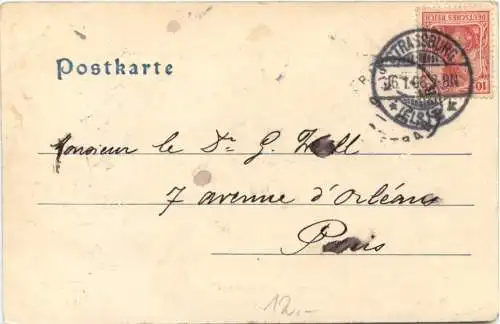 Postkarte
DEUTSCHES REICH
10
STRASSBURG
(ELS.)
Monsieur le Dr G.
7 avenue d'Orléans
Paris
12.-